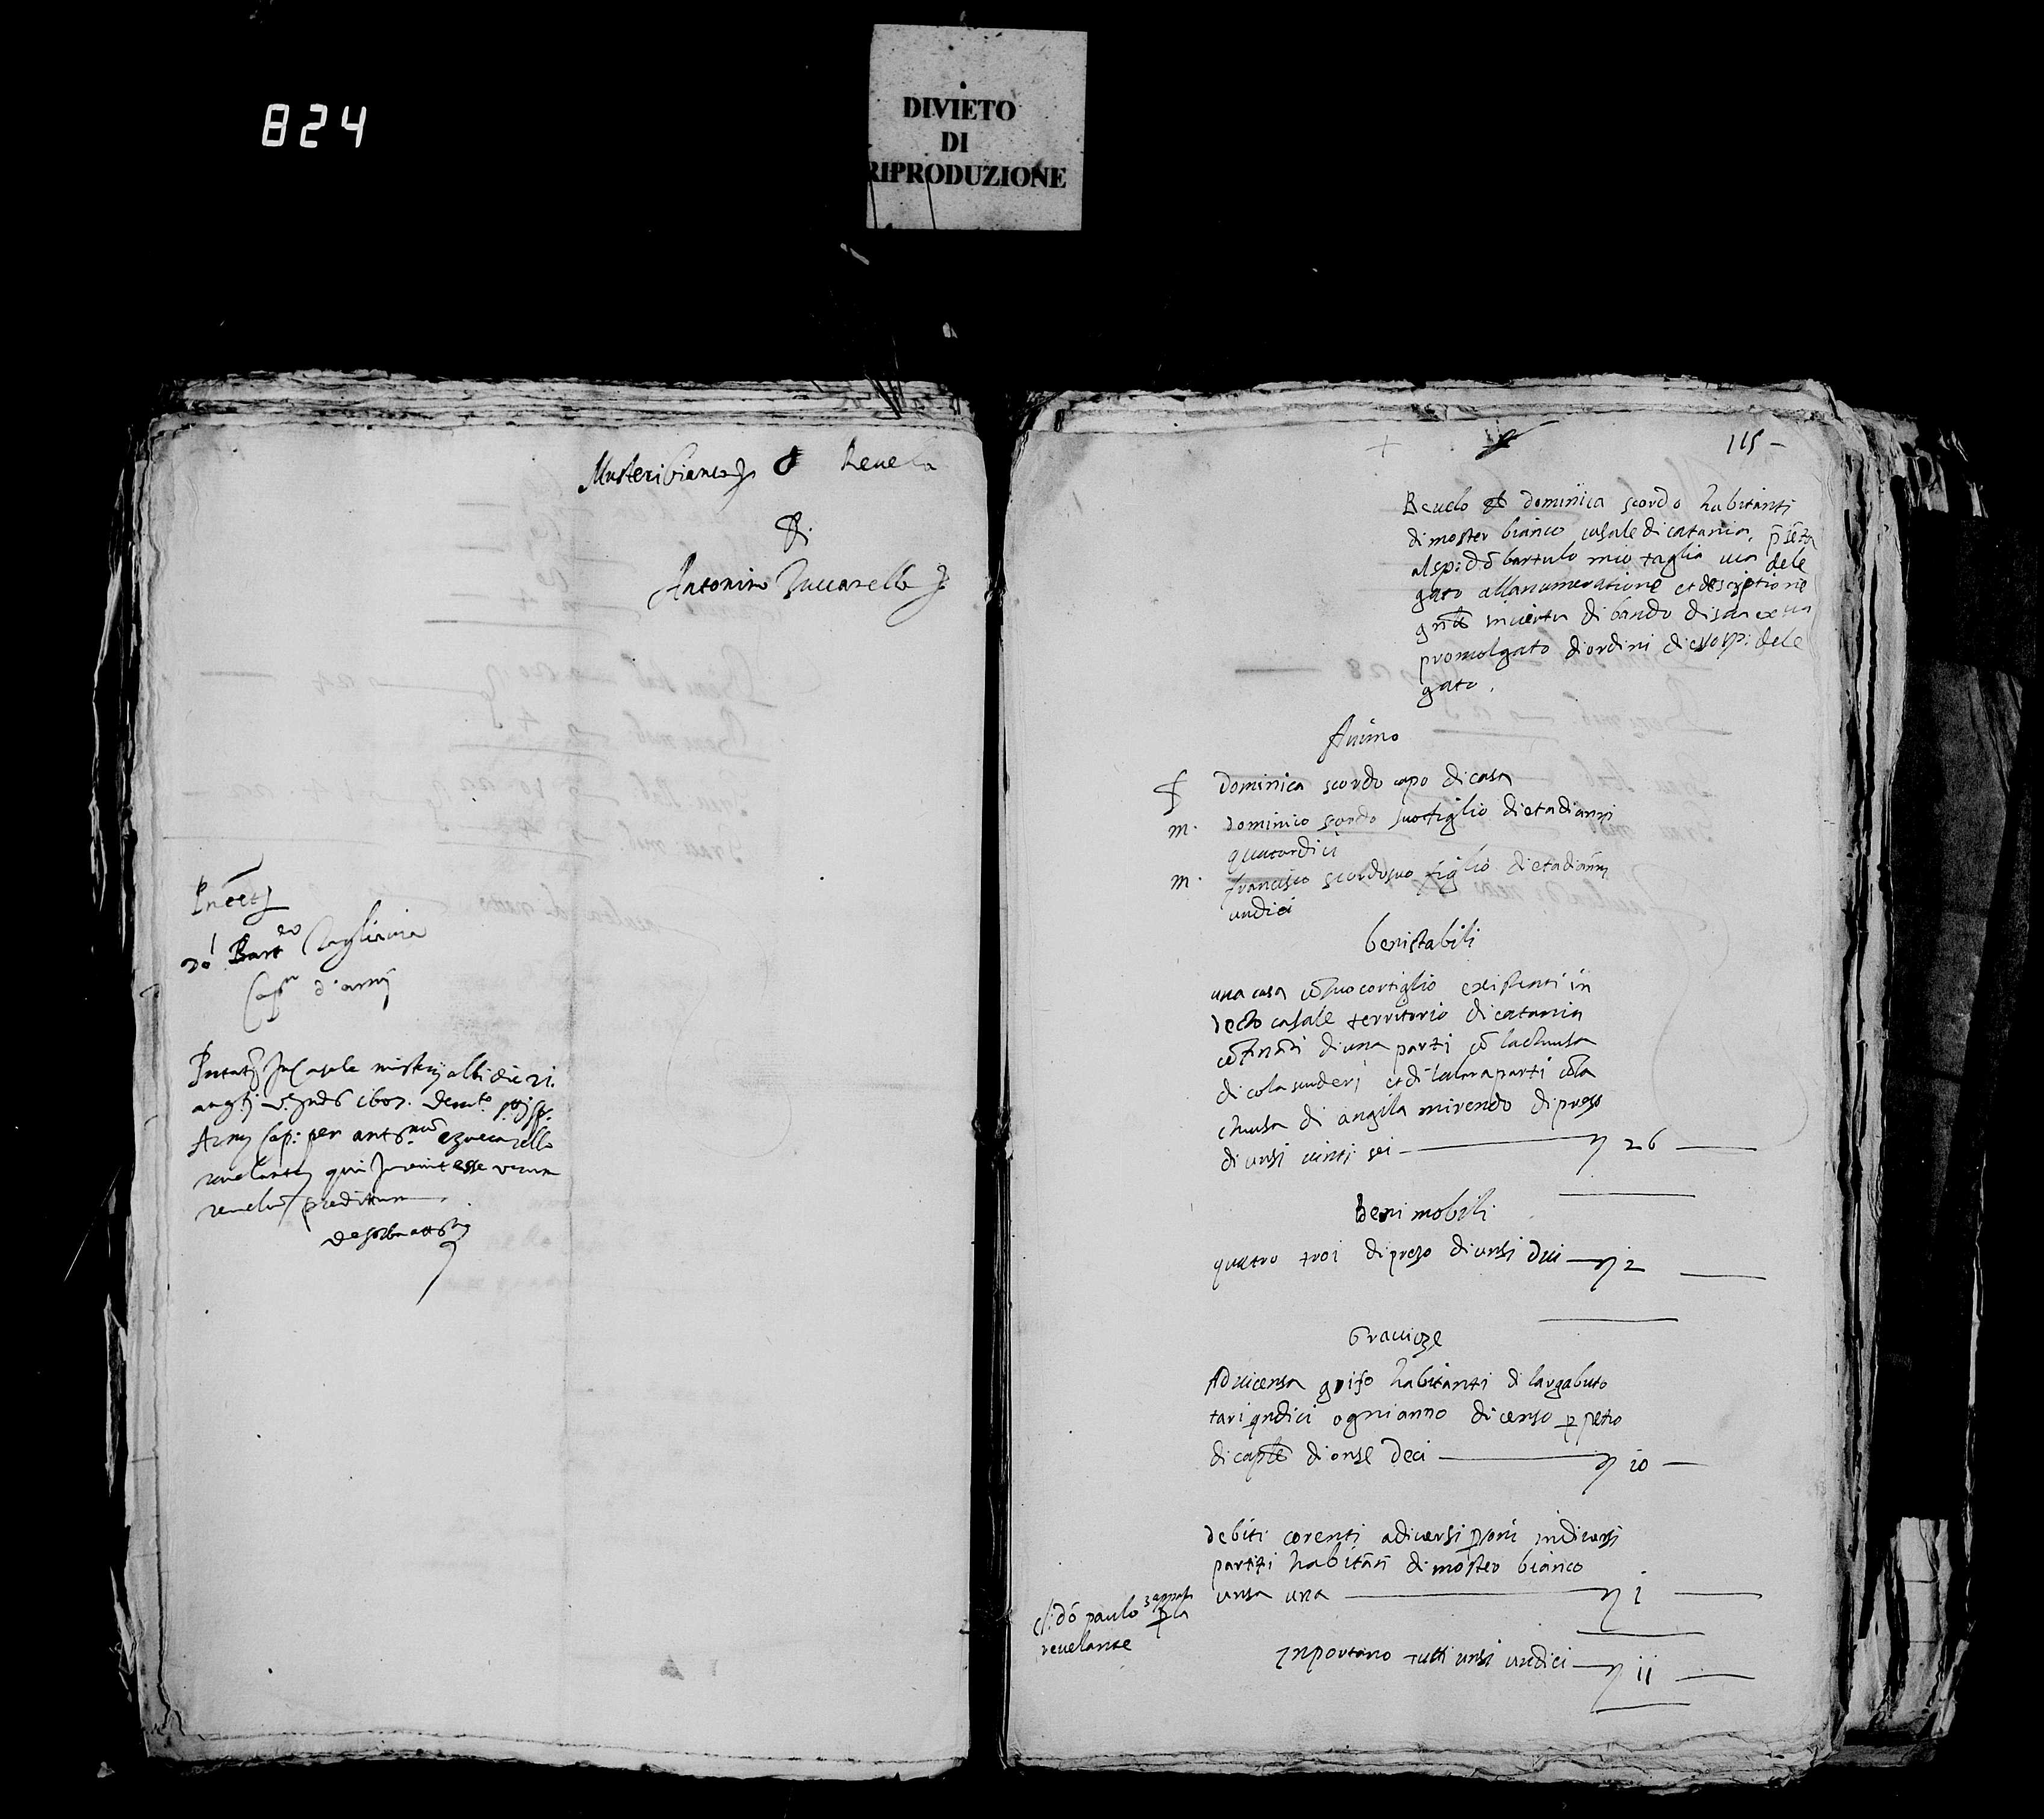 824
DIVIETO
DI
RIPRODUZIONE
Musteribianco 8 Revela
Di
Antonino Zuccarello
Pñtetʳ
Dō Bartᵉᵒ Tagliavia
Capⁿ d'armj
in Casale misterj albi die 21
augtj 1607.
Armj Cap: per antⁿᵘᵐ Ezuccarello
revelantẽ qui Juravit esse verum
revelũ preditum
115
Revelo dominica scordo habitanti
di moster bianco casale di catania, p̃sẽta
al sp: dō bartulo mio taglia via dele
gato alla numeratione et descriptione
gñle in virtu di bando di sua exᵃ
promolgato di ordini di esso sp: dele
gato.
Animo
f dominica scordo capo di casa
m. dominico scordo suo figlio di eta di anni
quatordici
m. francisco scordo suo figlio di eta di anni
undici
beni stabili
una casa cõ suo cortiglio existenti in
decto casale territorio di catania
cõfinãti di una parti cõ la chiusa
di cola scuderj et di laltra parti cõ la
chiusa di angila mirendo di prezo
di unsi vinti sei 26
Beni mobili
quatro troi di prezo di unsi dui 2
Gravioze
Ad vicensa grifo habitanti di largabuto
tari qndici ogni anno di censo ꝑpetio
di caple di onse deci 10
debiti corenti a diversi ꝑsoni in diversi
partiti habitãti di mosteo bianco
unsa una 1
cl: dō paulo zappala ꝑ la
revelante
Inportano tutti unsi undici 11